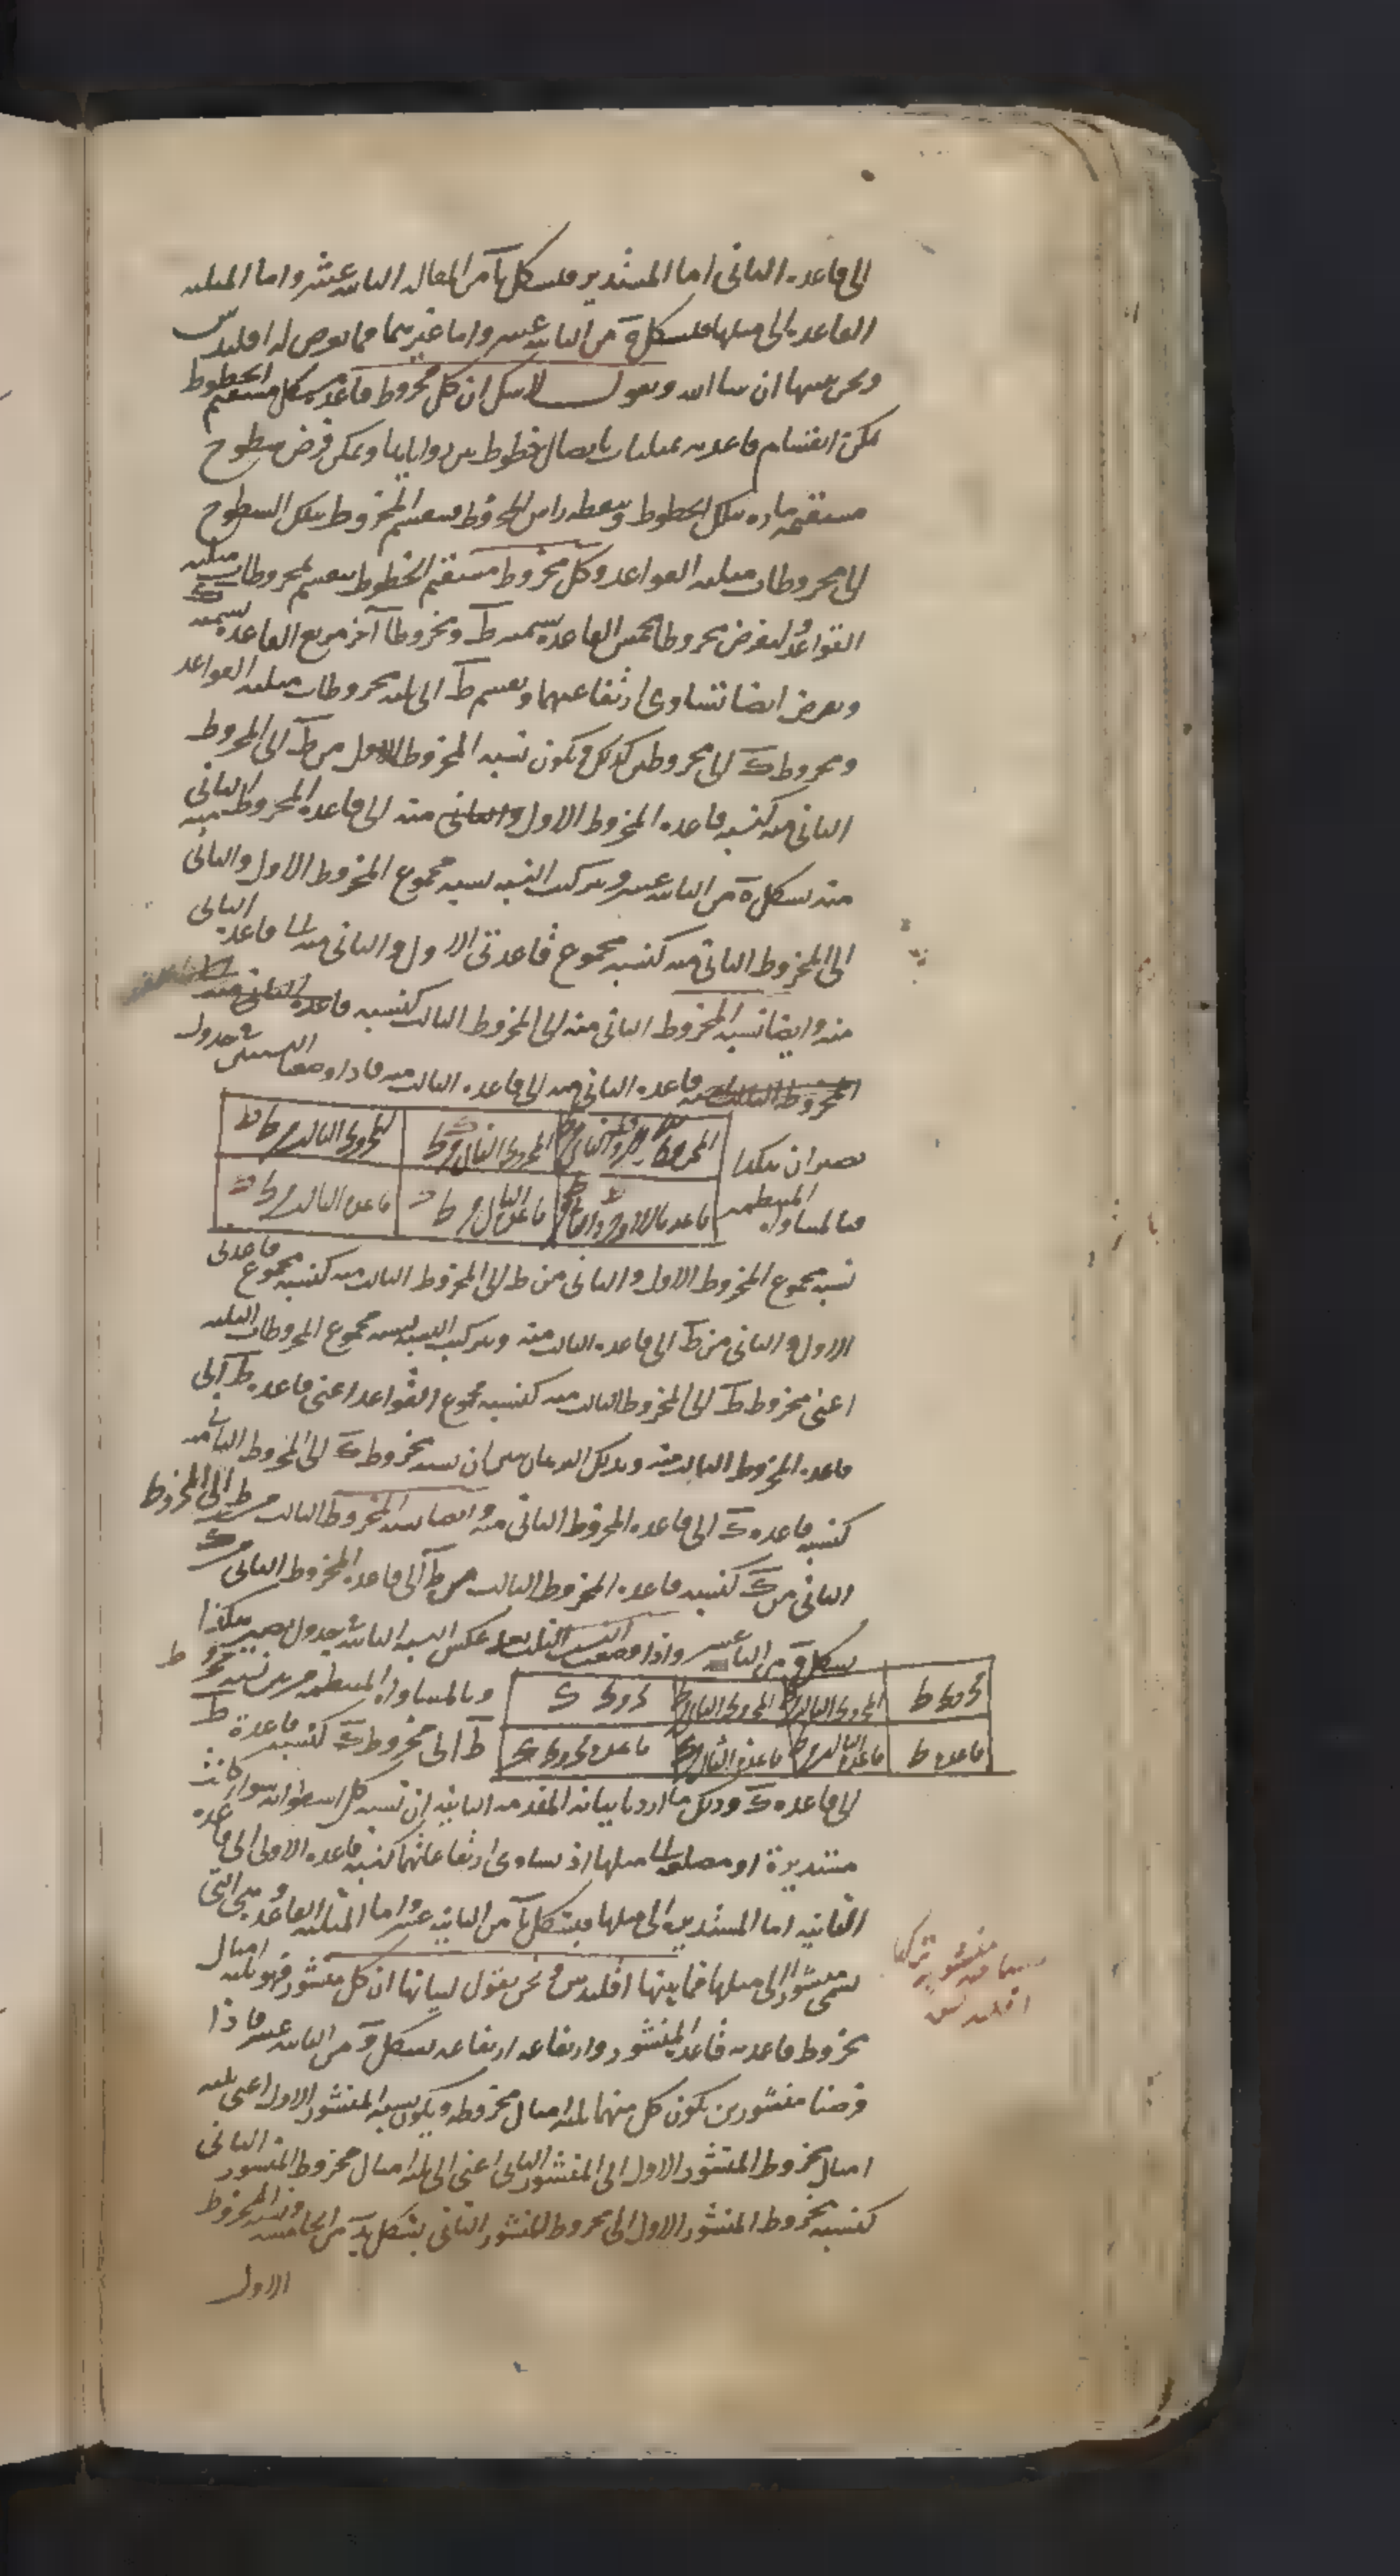 الى قاعدة الثانى اما المستدير فلشكل يا من المقالة الثانية عشر واما المثلثة
القاعدة الى مثلها فلشكل ة من الثانية عشر واما غيرهما فما تعرض له اقليدس
ونحن نبينها ان شا الله ونقول لا شك ان كل مخروط قاعدته شكل مستقيم الخطوط
يمكن انقسام قاعدته بمثلثات بايصال خطوط بين زواياها ويمكن فرض سطوح
مستقيمة مارة بتلك الخطوط ونقطة راس المخروط فينقسم المخروط بتلك السطوح
الى مخروطات مثلثة القواعد وكل مخروط مستقيم الخطوط ينقسم لمخروطات مثلثة
القواعد ولنفرض مخروطا مخمس القاعدة نسميه ط ومخروطا آخر مربع القاعدة نسميه ك
ونفرض ايضا تساوى ارتفاعيهما ونقسم ط الى ثلثة مخروطات مثلثة القواعد
ومخروط ك الى مخروطين كذلك فيكون نسبة المخروط الاول من ط الى المخروط
الثانى منه كنسبة قاعدة المخروط الاول منه الى قاعدة المخروط الثانى
منه بشكل ة من الثانية عشر وبتركيب النسبة نسبة مجموع المخروط الاول والثانى
الى المخروط الثانى منه كنسبة مجموع قاعدتى الاول والثانى منه الى قاعدة الثانى
منه وايضا نسبة المخروط الثانى منه الى المخروط الثالث كنسبة
قاعدة الثانى منه الى قاعدة الثالث منه فاذا وضعنا النسبتين فى جدول
المخروط الثانى من ط المخروط الثالث من ط
قاعدة الاول والثانى قاعدة الثانى من ط قاعدة الثالث من ط
تصيران هكذا
فبالمساواة المنتظمة
نسبة مجموع المخروط الاول والثانى من ط الى المخروط الثالث منه كنسبة مجموع قاعدتى
الاول والثانى من ط الى قاعدة الثالث منه وبتركيب النسبة نسبة مجموع المخروطات الثلثة
اعنى مخروط ط الى المخروط الثالث منه كنسبة مجموع القواعد اعنى قاعدة ط الى
قاعدة المخروط الثالث منه وبذلك البرهان يتبين ان نسبة مخروط ك الى المخروط الثانى منه
كنسبة قاعدة ك الى قاعدة المخروط الثانى منه وايضا نسبة المخروط الثالث من ط الى المخروط
الثانى من ك كنسبة قاعدة المخروط الثالث من ط الى قاعدة المخروط الثانى من ك
بشكل ة من الثانية عشر واذا وضعت النسب الثلث بعد عكس النسبة الثانية فى جدول تصير هكذا
مخروط ط المخروط الثالث من ط المخروط الثانى من ك مخروط ك
قاعدة ط قاعدة الثالث من ط قاعدة الثانى من ك قاعدة مخروط ك
وبالمساواة المنتظمة
ط الى مخروط ك كنسبة قاعدة ط
الى قاعدة ك وذلك ما اردنا بيانه المقدمة الثانية ان نسبة كل اسطوانة سوا كانت
مستديرة او مضلعة الى مثلها اذ تساوى ارتفاعاتهما كنسبة قاعدة الاولى الى قاعدة
الثانية اما المستديرة الى مثلها فبشكل يا من الثانية عشر واما المثلثة القاعدة وهى التى
تسمى منشورا الى مثلها فما بينها اقليدس ونحن نقول لبيانها ان كل منشور فهو ثلثة امثال
مخروط قاعدته قاعدة المنشور وارتفاعه ارتفاعه بشكل و من الثانية عشر فاذا
فرضنا منشورين يكون كل منهما ثلثة امثال مخروطه ويكون نسبة المنشور الاول اعنى ثلثة
امثال مخروط المنشور الاول الى المنشور الثانى اعنى الى ثلثة امثال مخروط المنشور الثانى
كنسبة مخروط المنشور الاول الى مخروط المنشور الثانى بشكل يه من الخامسة ونسبة المخروط
الاول
اقليدس